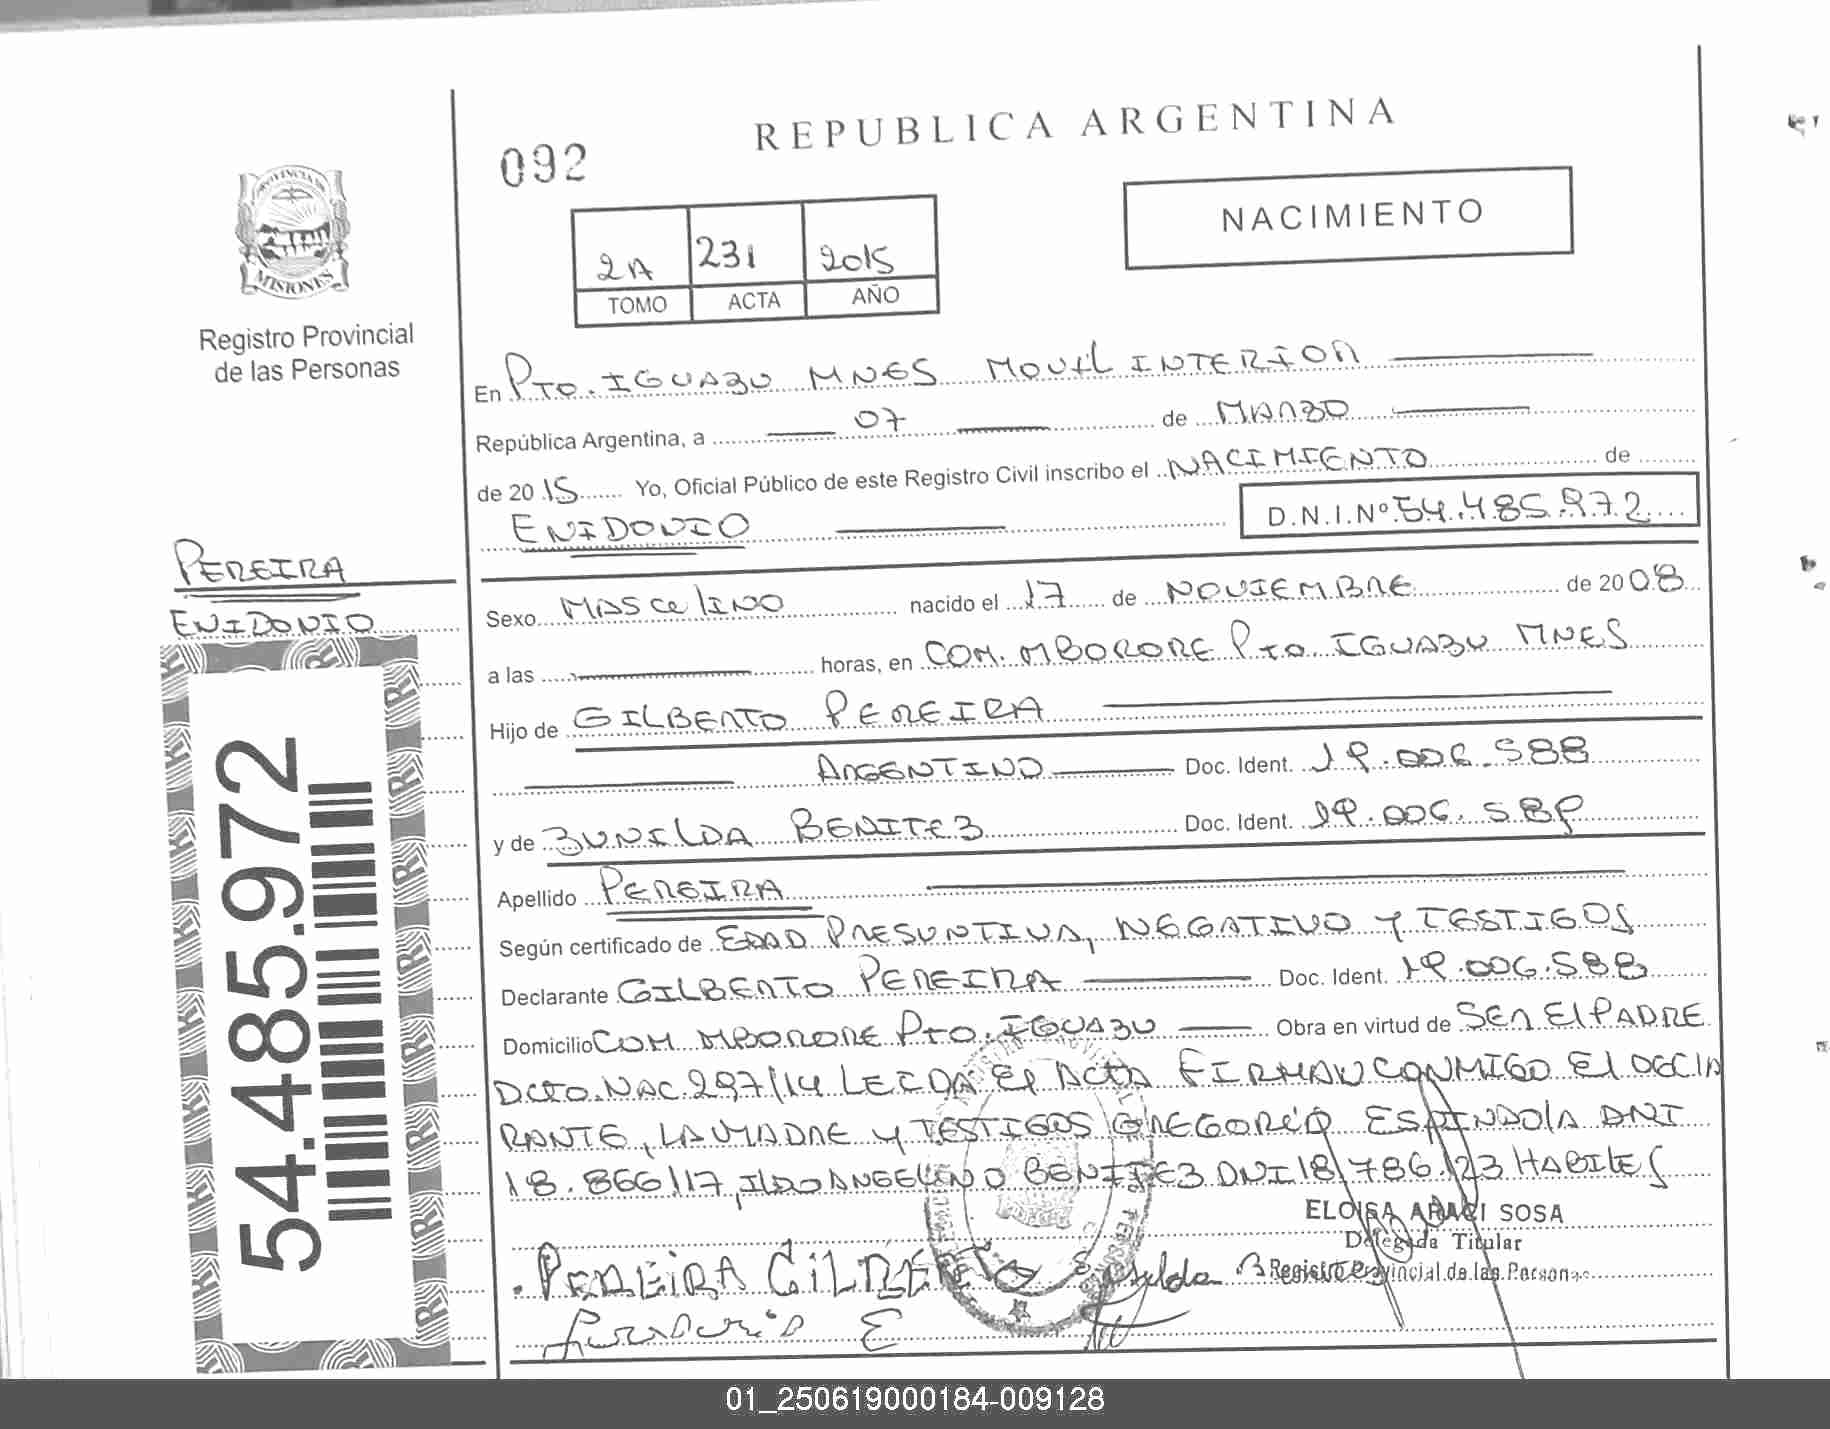 REPUBLICA ARGENTINA
092
NACIMIENTO
2A 231 2015
TOMO ACTA AÑO
PROVINCIA DE
MISIONES
Registro Provincial
de las Personas
En Pto. IGUAZU MNES MOVIL INTERIOR
República Argentina, a 07 de MARZO
de 2015 Yo, Oficial Público de este Registro Civil inscribo el NACIMIENTO de
ENIDONIO D.N.I.Nº 54.485.972
PEREIRA
ENIDONIO
54.485.972
Sexo MASCULINO nacido el 17 de NOVIEMBRE de 2008
a las horas, en COM. MBORORE Pto. IGUAZU MNES
Hijo de GILBERTO PEREIRA
ARGENTINO Doc. Ident. 19.006.588
y de ZUNILDA BENITEZ Doc. Ident. 19.006.589
Apellido PEREIRA
Según certificado de EDAD PRESUNTIVA, NEGATIVO Y TESTIGOS
Declarante GILBERTO PEREIRA Doc. Ident. 19.006.588
Domicilio COM MBORORE Pto. IGUAZU Obra en virtud de SER El PADRE
DCTO. NAC. 297/14 LEIDA El ACTA FIRMAN CONMIGO El DECLA
RANTE, LA MADRE y TESTIGOS GREGORIO ESPINDOlA DNI
18.866.117, ILDO ANGELINO BENITEZ DNI 18.786.123 HABILES
ELOISA ARACI SOSA
Delegada Titular
Registro Provincial de las Personas
PEREIRA
01_250619000184-009128